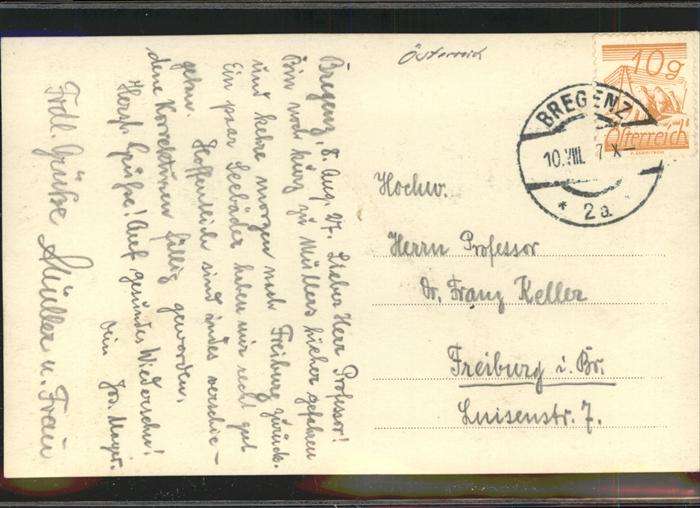 Österreich
10g
Österreich
BREGENZ
10.VIII. 7 X–
* 2a
Bregenz, 8. Aug. 27. Lieber Herr Professor!
Bin noch kurz zu Müllers hieher gefahren
und kehre morgen nach Freiburg zurück.
Ein paar Seebäder haben mir recht gut
getan. Hoffentlich sind indes verschie-
dene Korrekturen fällig geworden.
Herzl. Grüße! Auf gesundes Wiedersehn!
Dein Jos. Mayer.
Frdl. Grüße Müller u. Frau
Hochw.
Herrn Professor
Dr. Franz Keller
Freiburg i. Br.
Luisenstr. 7.